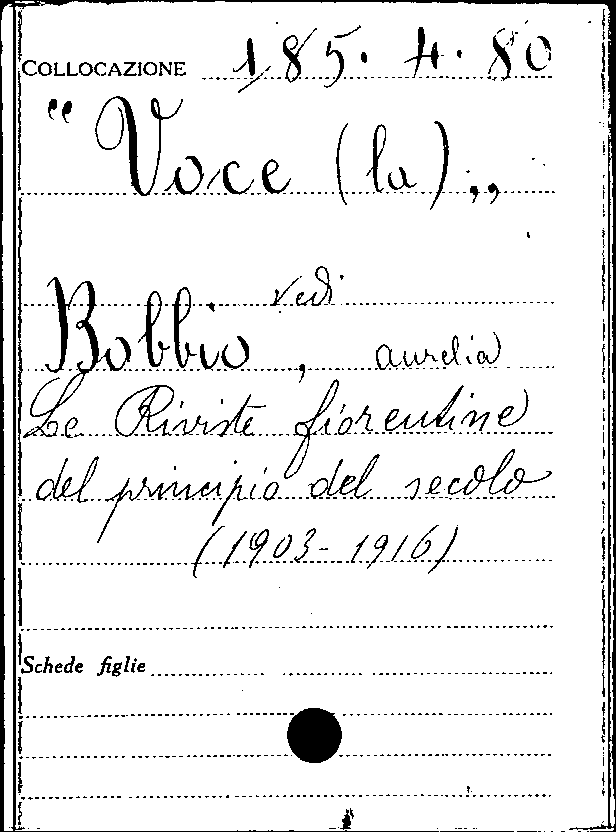 COLLOCAZIONE 185. 4. 80
“Voce (la)„
vedi
Bobbio, aurelia
Le Riviste fiorentine
del principio del secolo
(1903-1916)
Schede figlie